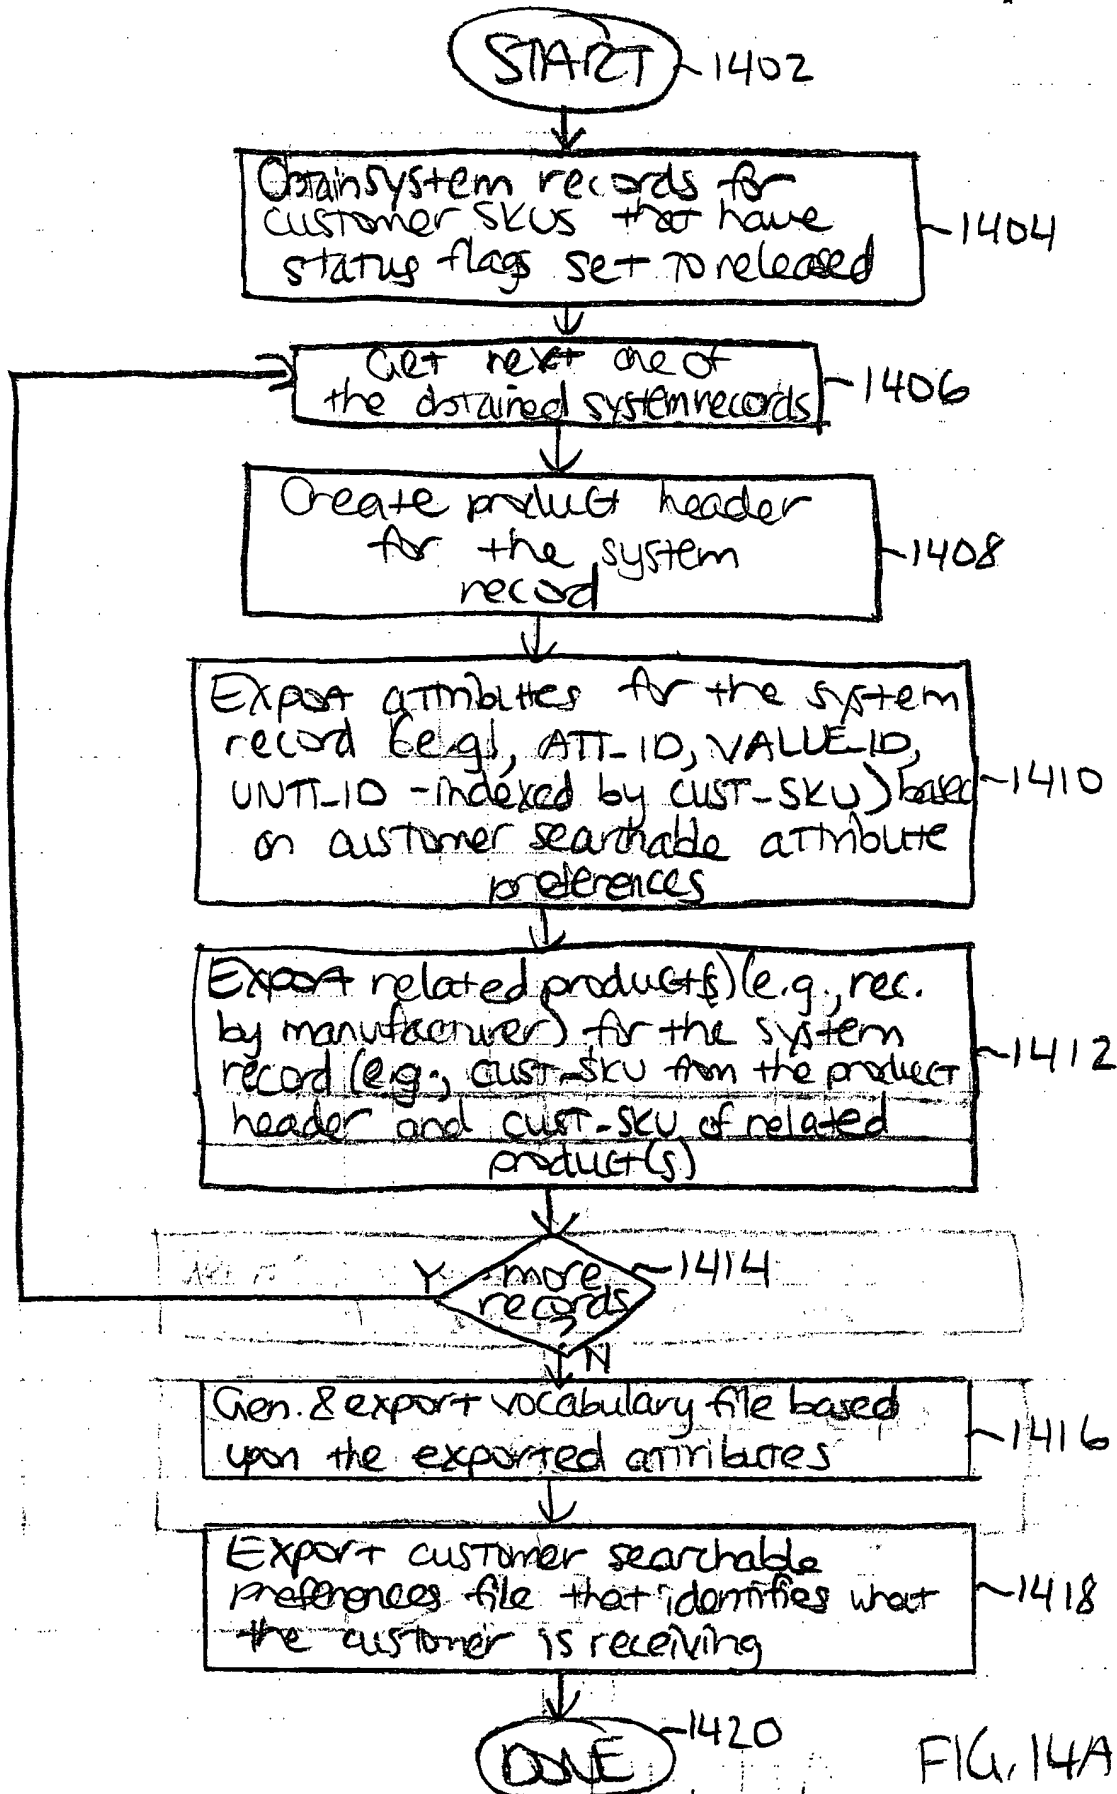 START 1402
Obtain system records for
customer SKUs that have
1404
status flags set to released
Get next one of
1406
the obtained system records
Create product header
for the system
1408
record
Export attributes for the system
record (e.g., ATT_ID, VALUE_ID,
UNIT_ID - indexed by CUST_SKU) based
1410
on customer searchable attribute
preferences
Export related product(s) (e.g., rec.
by manufacturer) for the system
1412
record (e.g., CUST_SKU from the product
header and CUST_SKU of related
product(s)
Y more 1414
records
?
N
Gen. & export vocabulary file based
1416
upon the exported attributes
Export customer searchable
preferences file that identifies what
1418
the customer is receiving
1420
DONE
FIG. 14A